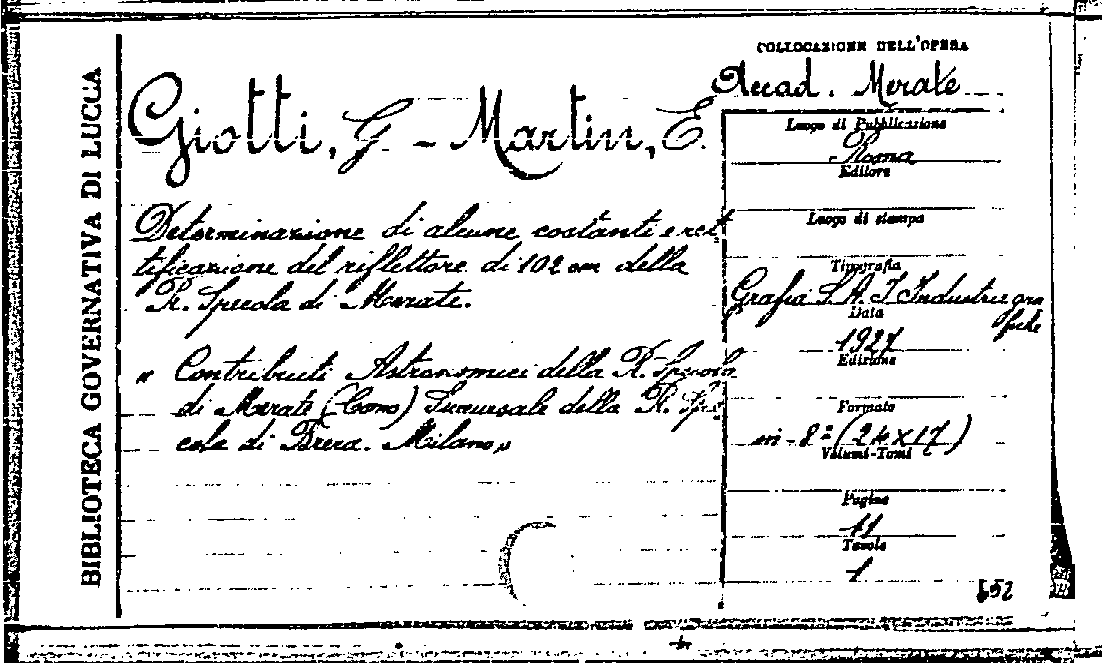 BIBLIOTECA GOVERNATIVA DI LUCCA
COLLOCAZIONE DELL'OPERA
Accad. Merate
Giotti, G. - Martin, E.
Determinazione di alcune costanti e ret
tificazione del riflettore di 102 cm della
R. Specola di Merate.
" Contributi Astronomici della R. Specola
di Merate (Como) Succursale della R. Spe
cola di Brera. Milano "
Luogo di Pubblicazione
Roma
Editore
Luogo di stampa
Tipografia
Grafia S.A.I Industrie gra
fiche
Data
1927
Edizione
Formato
in-8º (24x17)
Volumi-Tomi
Pagine
11
Tavole
1
652